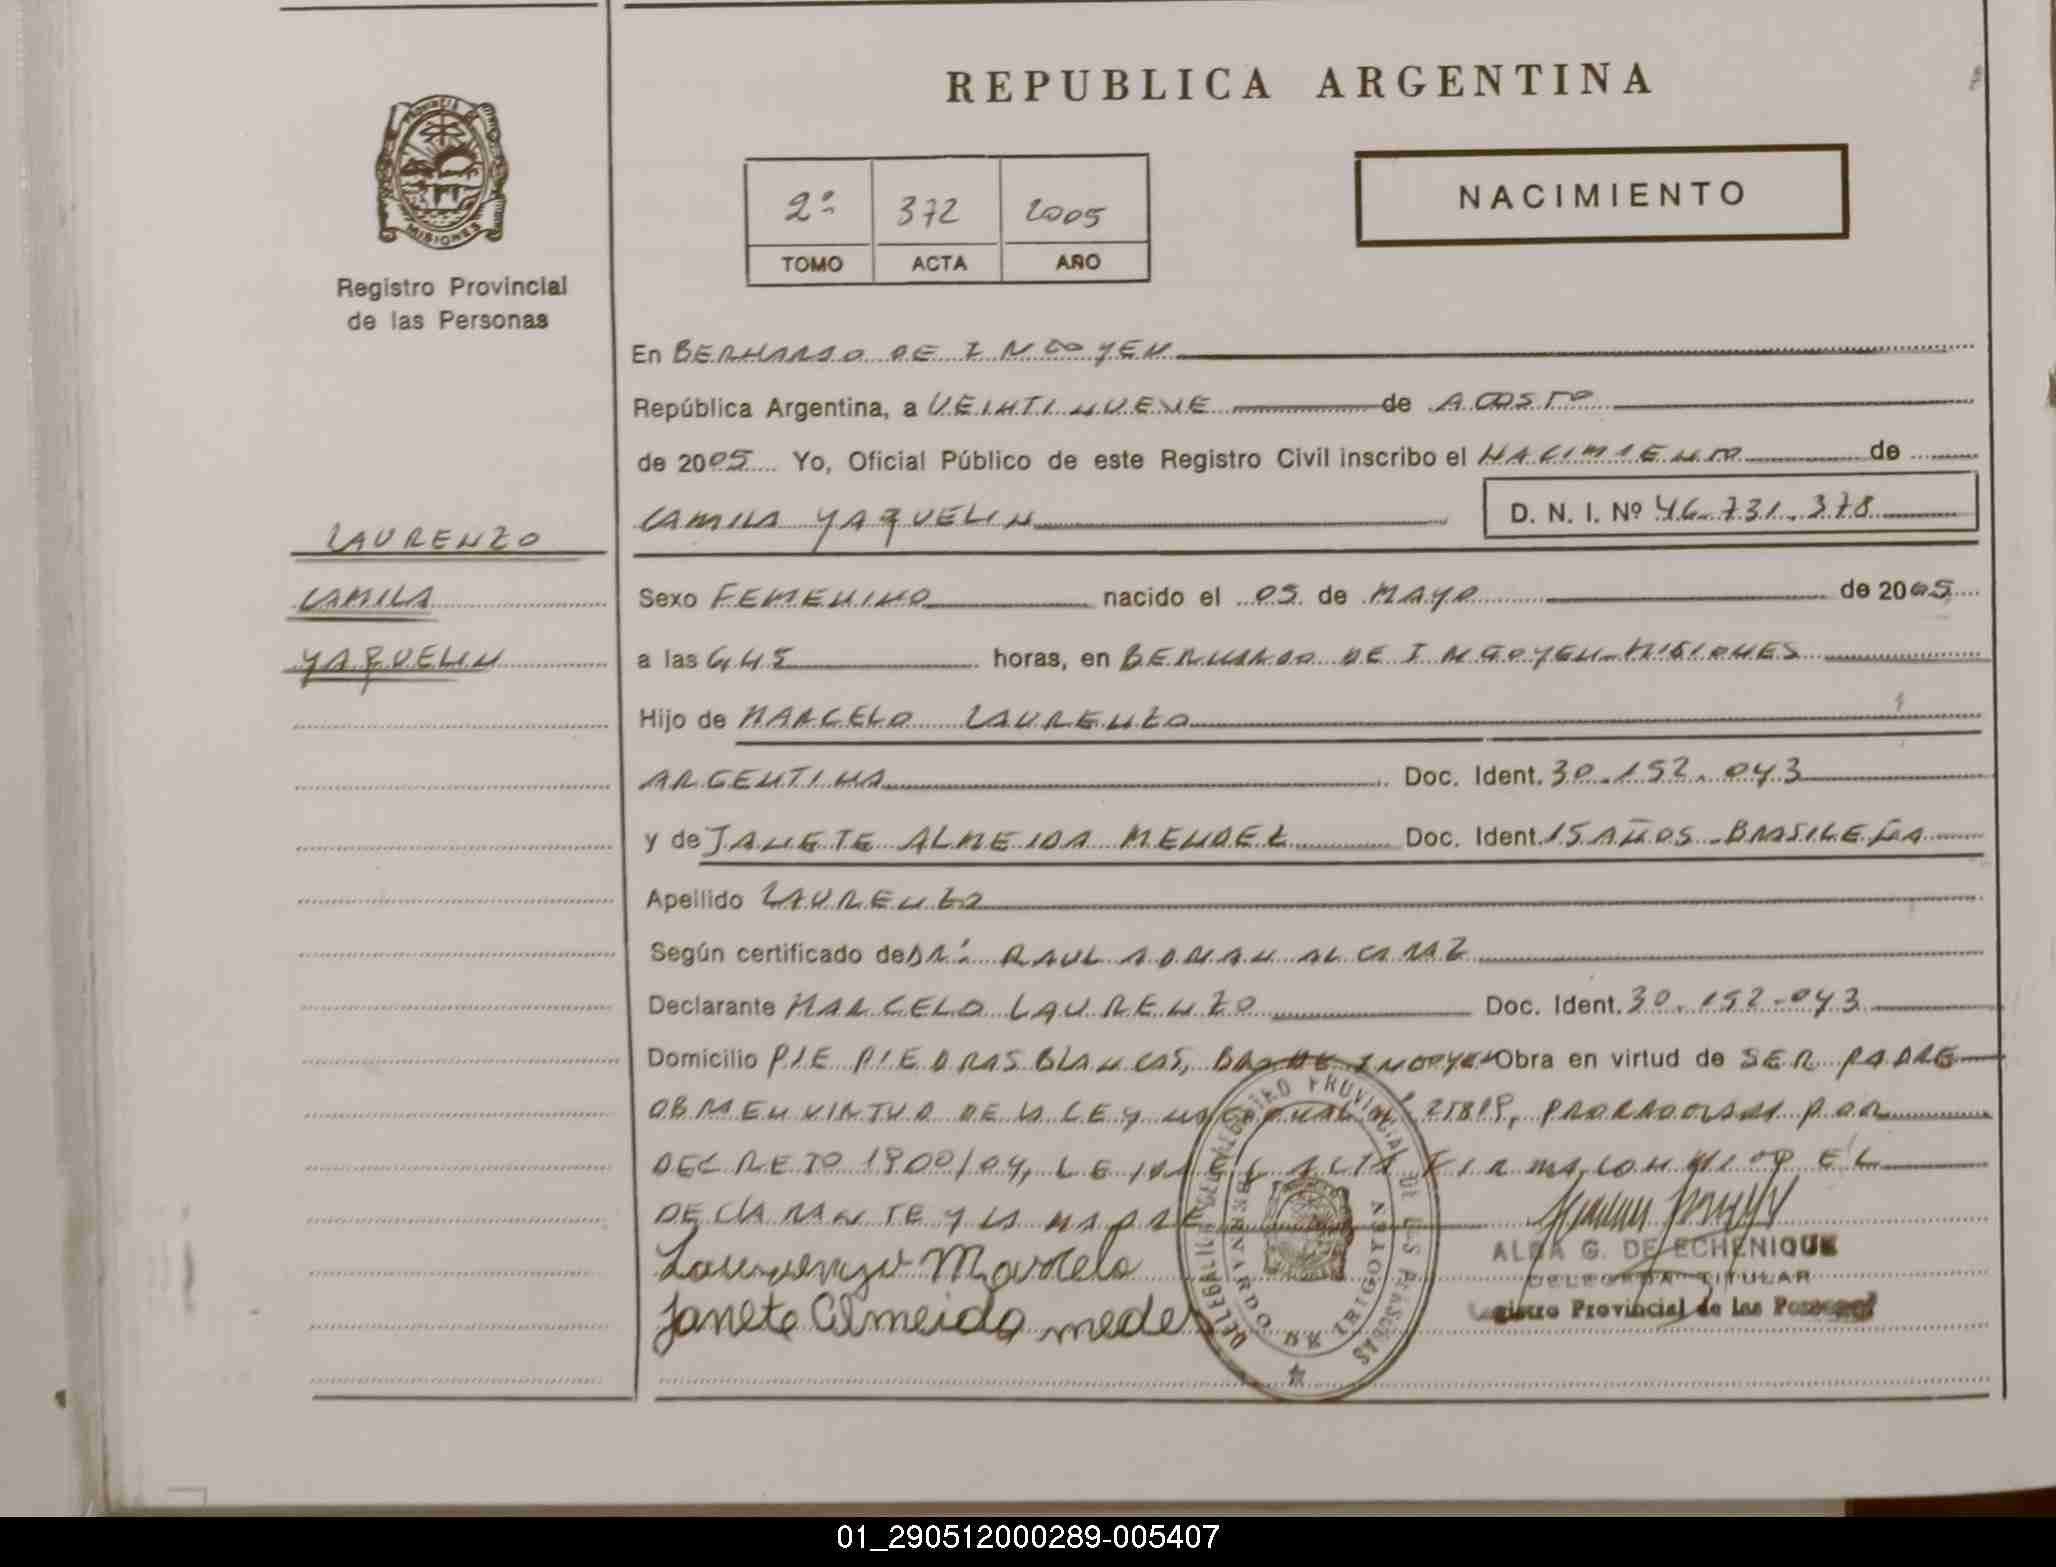 REPUBLICA ARGENTINA
PROVINCIA DE MISIONES
Registro Provincial
de las Personas
2º 372 2005
TOMO ACTA AÑO
NACIMIENTO
En BERNARDO DE IRIGOYEN
República Argentina, a VEINTINUEVE de AGOSTO
de 2005 Yo, Oficial Público de este Registro Civil inscribo el NACIMIENTO de
CAMILA YAQUELIN D. N. I. Nº 46.731.378
LAURENZO
CAMILA
YAQUELIN
Sexo FEMENINO nacido el 05 de MAYO de 2005
a las 4,45 horas, en BERNARDO DE IRIGOYEN-MISIONES
Hijo de MARCELO LAURENZO
ARGENTINA Doc. Ident. 30.152.043
y de JANETE ALMEIDA MENDEZ Doc. Ident. 15 AÑOS-BRASILEÑA
Apellido LAURENZO
Según certificado de DR. RAUL ADRIAN ALCARAZ
Declarante MARCELO LAURENZO Doc. Ident. 30.152.043
Domicilio PJE PIEDRAS BLANCAS, BDO DE IRIGOYEN Obra en virtud de SER PADRE
OBRA EN VIRTUD DE LA LEY NACIONAL Nº 25819, PRORROGADA POR
DECRETO 1900/04, LEIDA EL ACTA FIRMA, CONMIGO EL
DECLARANTE Y LA MADRE
Laurenzo Marcelo
Janete Almeida meder
DELEGACION REGISTRO PROVINCIAL DE LAS PERSONAS
BERNARDO DE IRIGOYEN
ALBA G. DE ECHENIQUE
DELEGADA TITULAR
Registro Provincial de las Personas
01_290512000289-005407